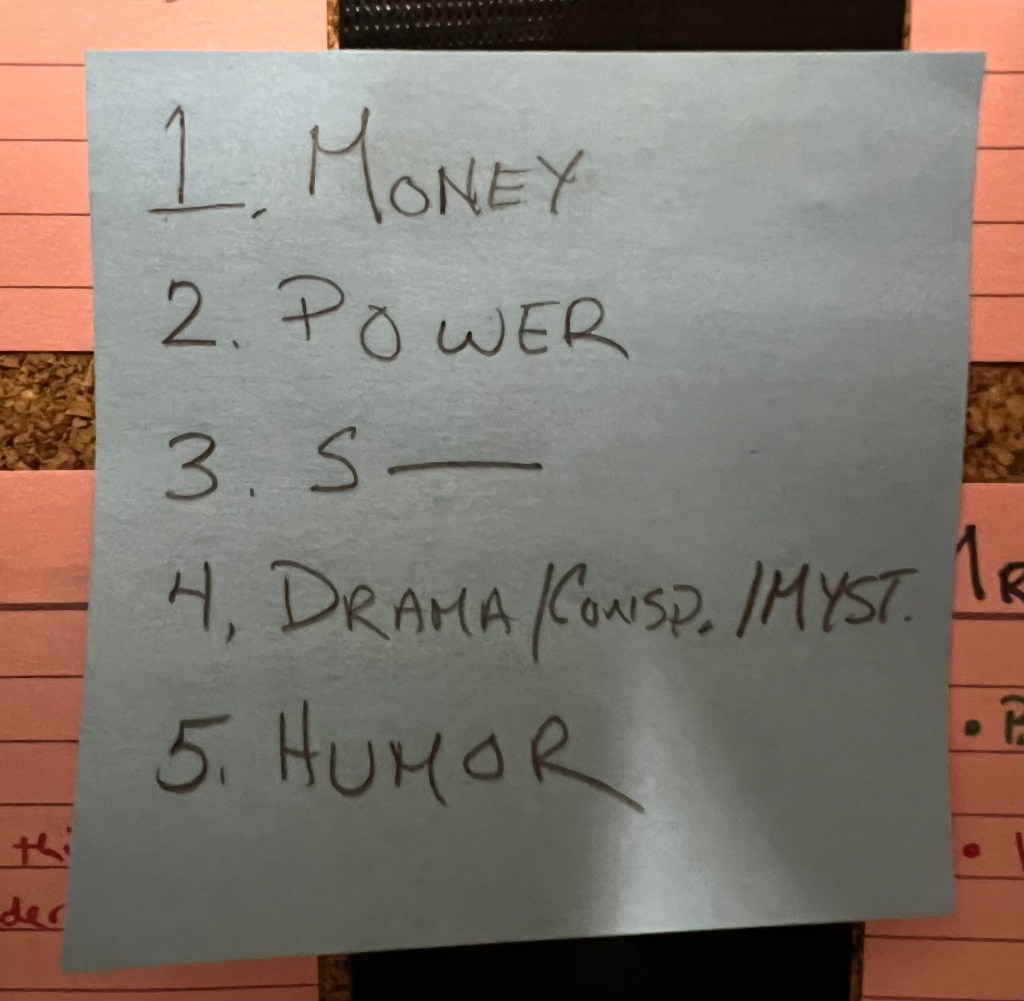 1. MONEY
2. POWER
3. S —
4. DRAMA/CONSP./MYST.
5. HUMOR
thi
der